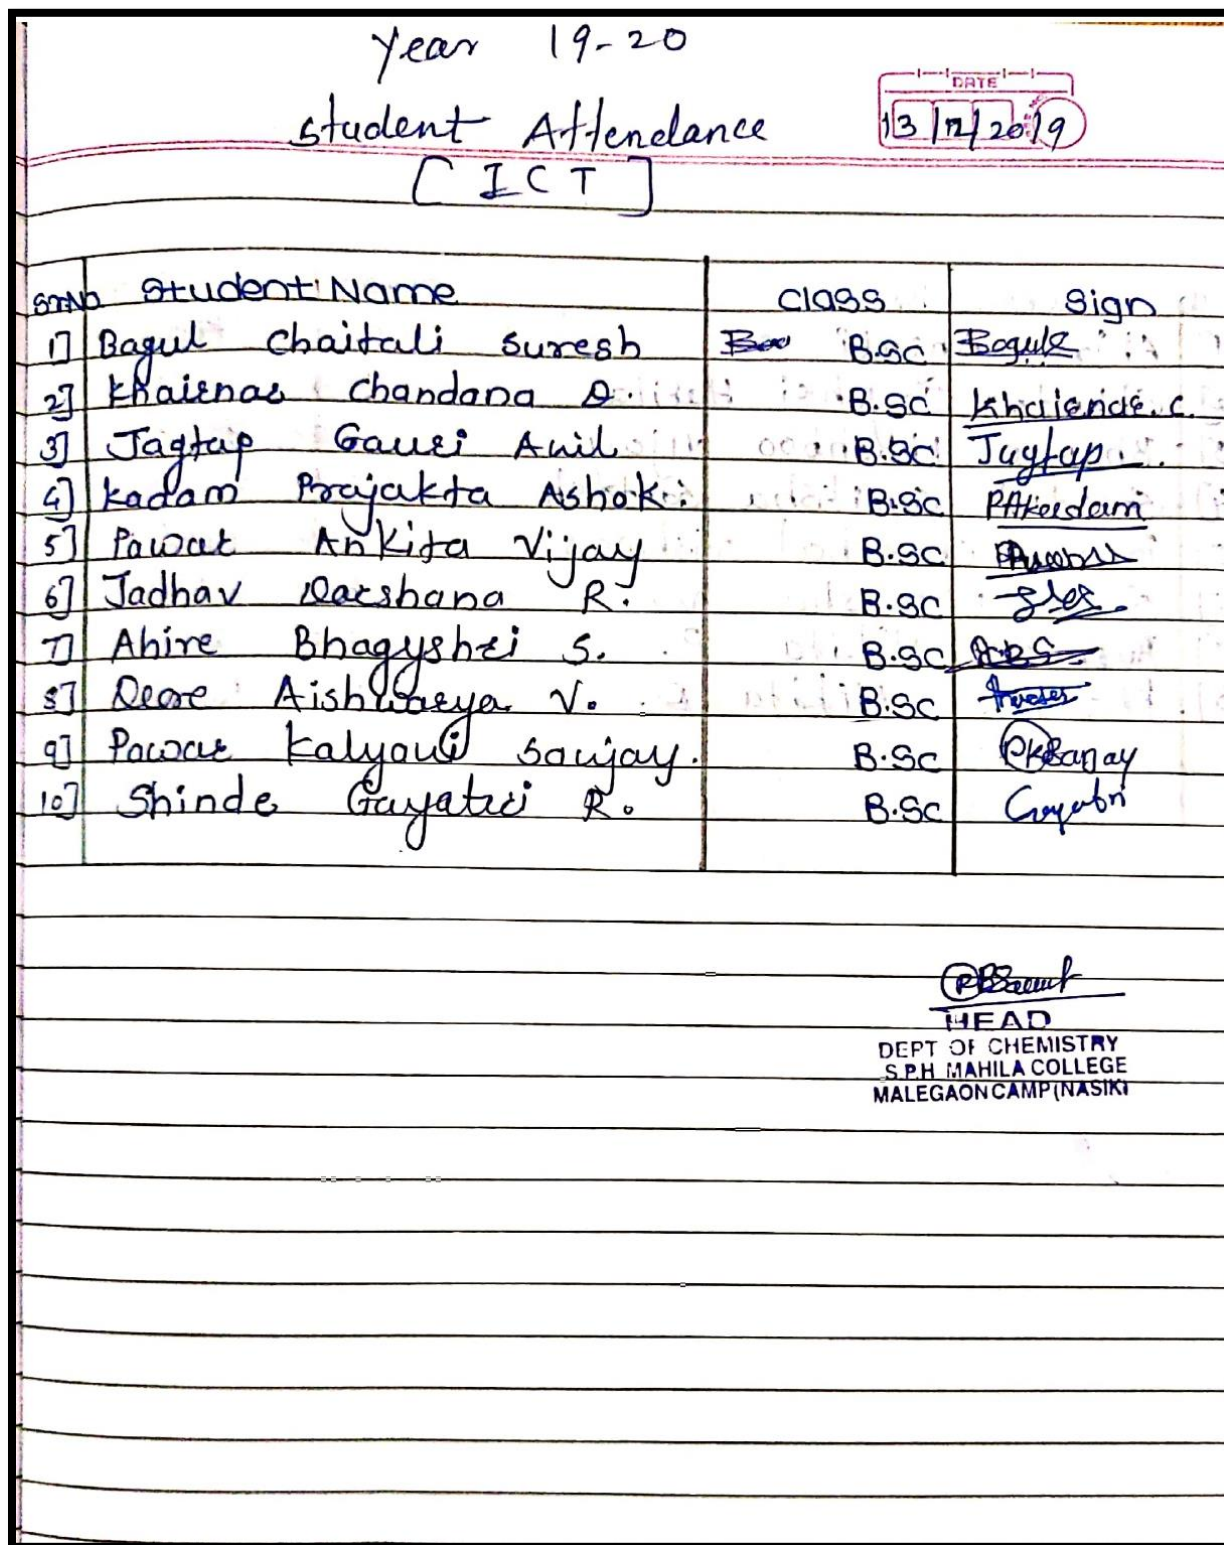 Year 19-20
DATE
13/12/2019
Student Attendance
[ICT]
Sr.No Student Name Class Sign
1] Bagul Chaitali Suresh B.Sc Bagul
2] Khairnar Chandana D. B.Sc Khairnar.C.
3] Jagtap Gauri Anil B.Sc Jagtap
4] Kadam Prajakta Ashok. B.Sc PAKadam
5] Pawar Ankita Vijay B.Sc
6] Jadhav Darshana R. B.Sc
7] Ahire Bhagyshri S. B.Sc
8] Deore Aishwarya V. B.Sc
9] Pawar Kalyani Sanjay. B.Sc PKSanjay
10] Shinde Gayatri R. B.Sc Gayatri
HEAD
DEPT OF CHEMISTRY
S.P.H MAHILA COLLEGE
MALEGAON CAMP (NASIK)